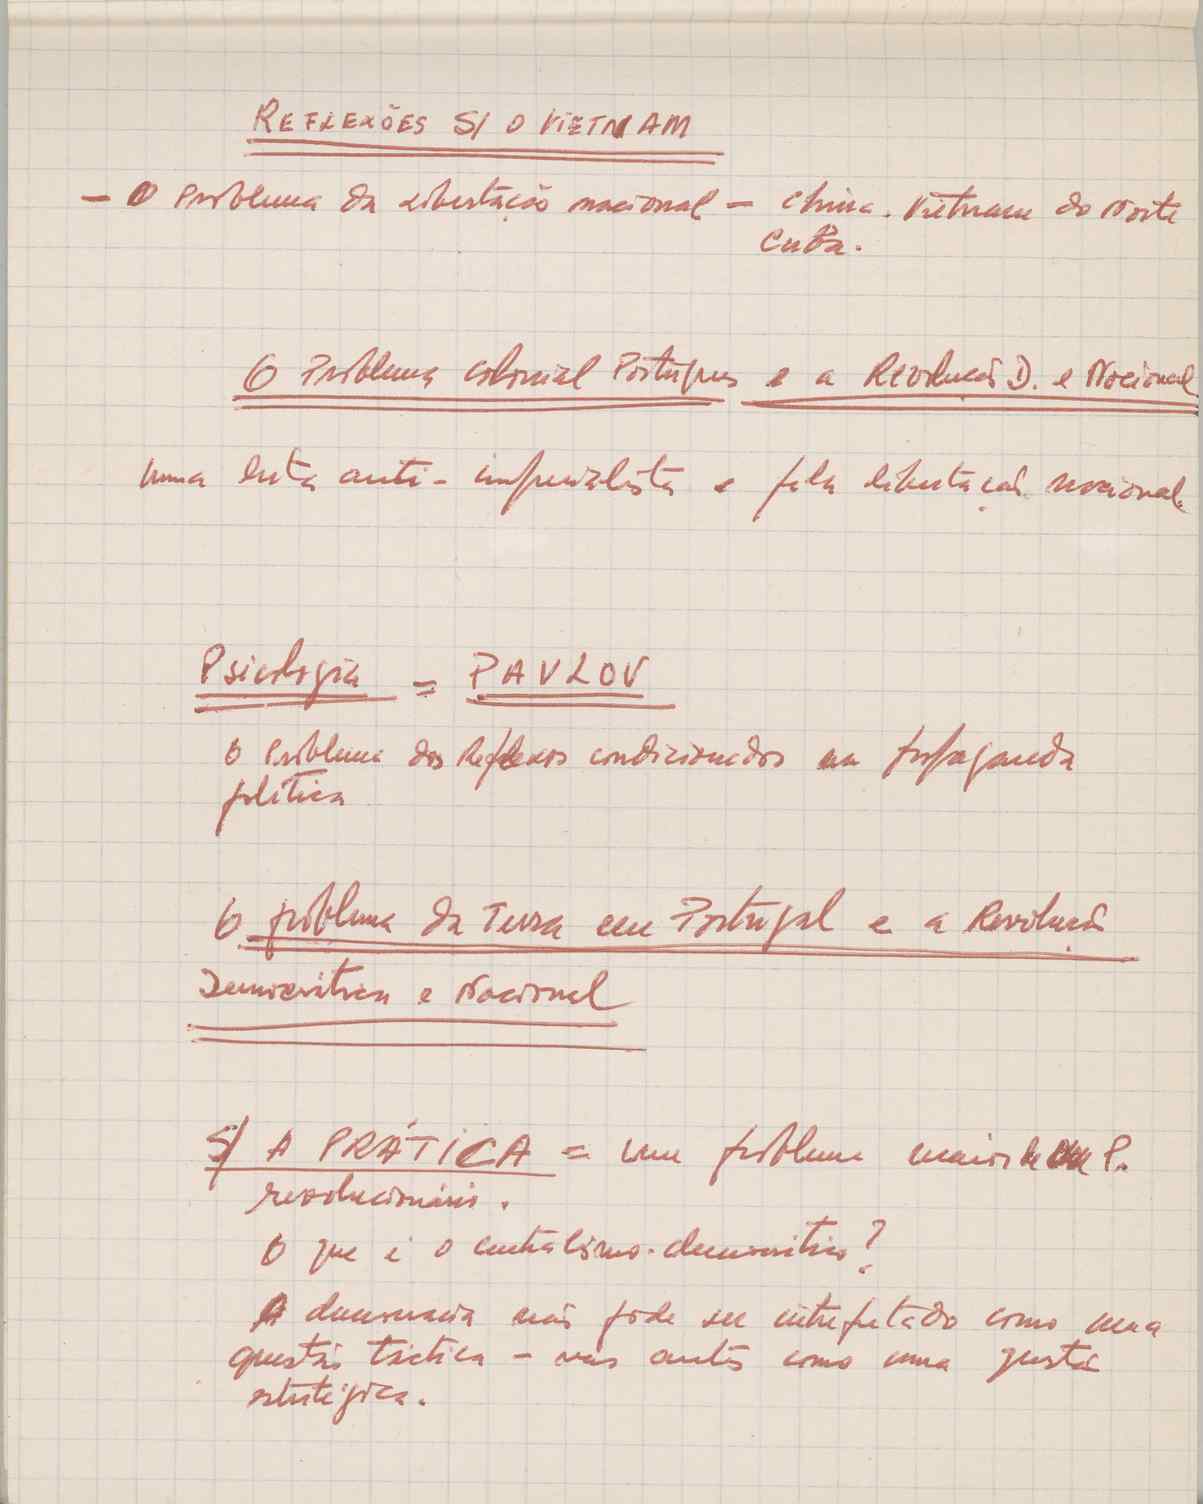 REFLEXÕES S/ O VIETNAM
- O Problema da Libertação nacional - China. Vietnam do Norte
Cuba.
O Problema colonial Português e a Revolução D. e Nacional
uma luta anti-imperialista e pela libertação nacional.
Psicologia = PAVLOV
O Problema dos Reflexos condicionados na propaganda
política
O problema da Terra em Portugal e a Revolução
Democrática e Nacional
S/ A PRÁTICA = um problema maior de um P.
revolucionário.
O que é o centralismo-democrático?
A democracia não pode ser interpretado como uma
questão táctica - mas antes como uma questão
estratégica.